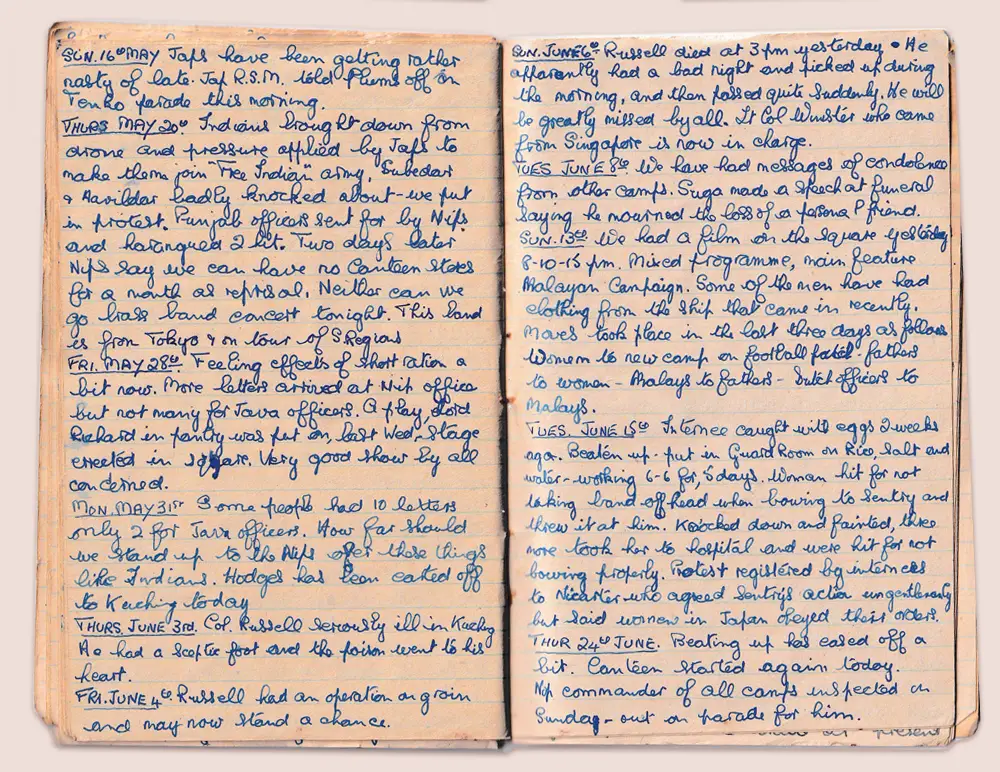 SUN. 16th MAY Japs have been getting rather
nasty of late. Jap R.S.M. told Plums off on
Tenko parade this morning.
THURS MAY 20th. Indians brought down from
drome and pressure applied by Japs to
make them join Free Indian army, Subedar
& Havildar badly knocked about - we put
in protest. Punjab officers sent for by Nips
and harangued 2 hit. Two days later
Nips say we can have no Canteen stores
for a month as reprisal. Neither can we
go brass band concert tonight. This band
is from Tokyo & on tour of S. Regions
FRI. MAY 28th. Feeling effects of short ration a
bit now. More letters arrived at Nip office
but not many for Java officers. A play, Lord
Richard in pantry was put on, last Wed. Stage
erected in square. Very good show by all
concerned.
MON. MAY 31st Some people had 10 letters
only 2 for Java officers. How far should
we stand up to the Nips after these things
like Indians. Hodges has been carted off
to Kuching today
THURS. JUNE 3rd. Col. Russell seriously ill in Kuching
He had a sceptic foot and the poison went to his
heart.
FRI. JUNE 4th. Russell had an operation on groin
and may now stand a chance.
SUN. JUNE 6th. Russell died at 3 pm yesterday. He
apparantly had a bad night and picked up during
the morning, and then passed quite suddenly. He will
be greatly missed by all. Lt Col Whister who came
from Singapore is now in charge.
TUES JUNE 8th. We have had messages of condolence
from other camps. Suga made a speech at funeral
saying he mourned the loss of a personal friend.
SUN. 13th We had a film on the square yesterday
8-10-15 pm. Mixed programme, main feature
Malayan Campaign. Some of the men have had
clothing from the ship that came in recently.
Moves took place in the last three days as follows
Women to new camp on football - fathers
to women - Malays to fathers - Dutch officers to
Malays.
TUES. JUNE 15th Internee caught with eggs 2 weeks
ago. Beaten up - put in Guard Room on Rice, salt and
water - working 6-6 for, 5 days. Woman hit for not
taking band off head when bowing to sentry and
threw it at him. Knocked down and fainted, three
more took her to hospital and were hit for not
bowing properly. Protest registered by internees
to who agreed sentry's action ungentlemanly
but said women in Japan obeyed their orders.
THUR 24th JUNE. Beating up has eased off a
bit. Canteen started again today.
Nip commander of all camps inspected on
Sunday - out on parade for him.